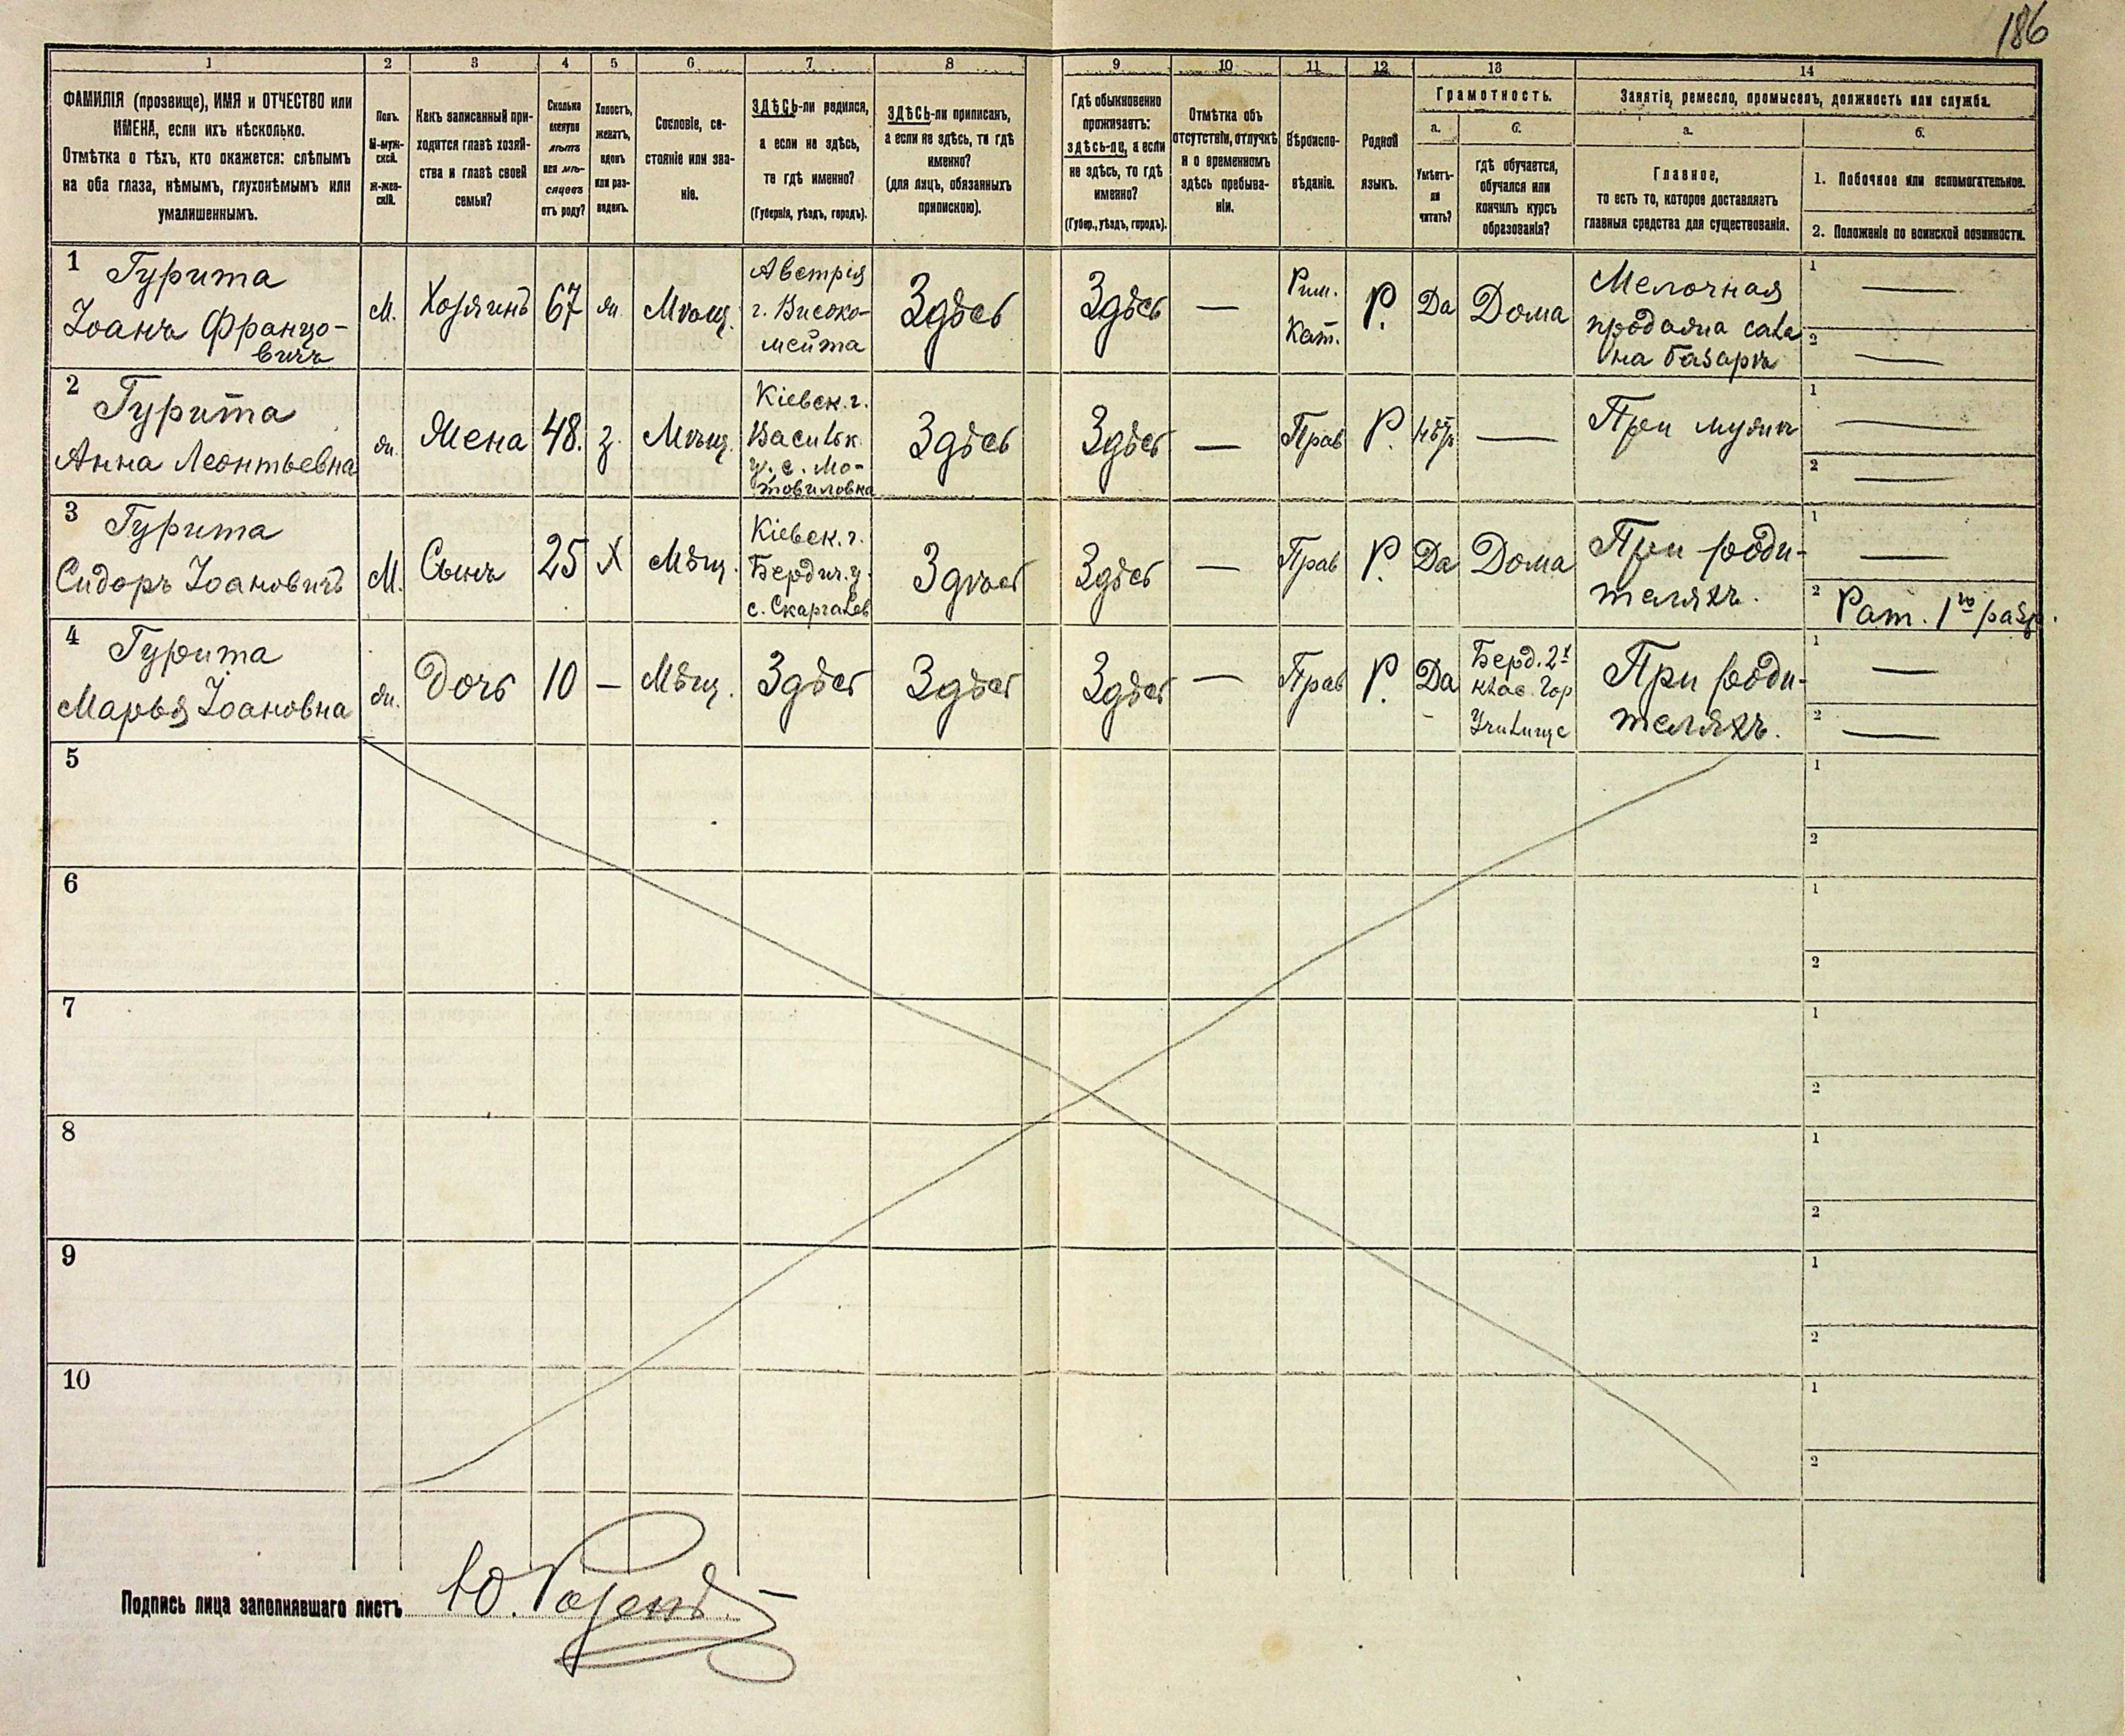 186
1
2
3
4
5
6
7
8
9
10
11
12
13
14
ФАМИЛІЯ (прозвище), ИМЯ и ОТЧЕСТВО или
ИМЕНА, если ихъ нѣсколько.
Отмѣтка о тѣхъ, кто окажется: слѣпымъ
на оба глаза, нѣмымъ, глухонѣмымъ или
умалишеннымъ.
Полъ.
М-муж-
ской.
Ж-жен-
скій.
Какъ записанный при-
ходится главѣ хозяй-
ства и главѣ своей
семьи?
Сколько
минуло
лѣтъ
или мѣ-
сяцевъ
отъ роду?
Холостъ,
женатъ,
вдовъ
или раз-
веденъ.
Сословіе, со-
стояніе или зва-
ніе.
ЗДѢСЬ-ли родился,
а если не здѣсь,
то гдѣ именно?
(Губернія, уѣздъ, городъ).
ЗДѢСЬ-ли приписан,
а если не здѣсь, то гдѣ
именно?
(для лицъ, обязанныхъ
припискою).
Гдѣ обыкновенно
проживаетъ:
здѣсь-ли, а если
не здѣсь, то гдѣ
именно?
(Губер., уѣздъ, городъ).
Отмѣтка объ
отсутствіи, отлучкѣ
и о временномъ
здѣсь пребыва-
ніи.
Вѣроиспо-
вѣданіе.
Родной
языкъ.
Грамотность.
а.
Умѣетъ-
ли
читать?
б.
Гдѣ обучается,
обучался или
кончилъ курсъ
образованія?
Занятіе, ремесло, промыселъ, должность или служба.
а.
Главное,
то есть то, которое доставляетъ
главныя средства для существованія.
б.
1. Побочное или вспомогательное.
2. Положеніе по воинской повинности.
1
Гурита
Іоанъ Францо-
вичъ
М.
Хозяинъ
67
ж.
Мѣщ.
Австрія
г. Високо-
мейта
Здѣсь
Здѣсь
—
Рим.
Кат.
Р.
Да
Дома
Мелочная
продажа сала
на базарѣ
1 —
2 —
2
Гурита
Анна Леонтьевна
ж.
Жена
48.
з.
Мѣщ.
Кіевск. г.
Васильк.
у. с. Мо-
товиловка
Здѣсь
Здѣсь
—
Прав
Р.
нѣтъ
—
При мужѣ
1 —
2 —
3
Гурита
Сидоръ Іоановичъ
М.
Сынъ
25
Х
Мѣщ.
Кіевск. г.
Бердич. у.
с. Скаргалев
Здѣсь
Здѣсь
—
Прав
Р.
Да
Дома
При роди-
теляхъ.
1 —
2 Рат. 1го разр.
4
Гурита
Марья Іоановна
ж.
Дочь
10
—
Мѣщ.
Здѣсь
Здѣсь
Здѣсь
—
Прав
Р.
Да
Берд. 2х
клас. Гор
Училище
При роди-
теляхъ.
1 —
2 —
5
1
2
6
1
2
7
1
2
8
1
2
9
1
2
10
1
2
Подпись лица заполнявшаго листъ